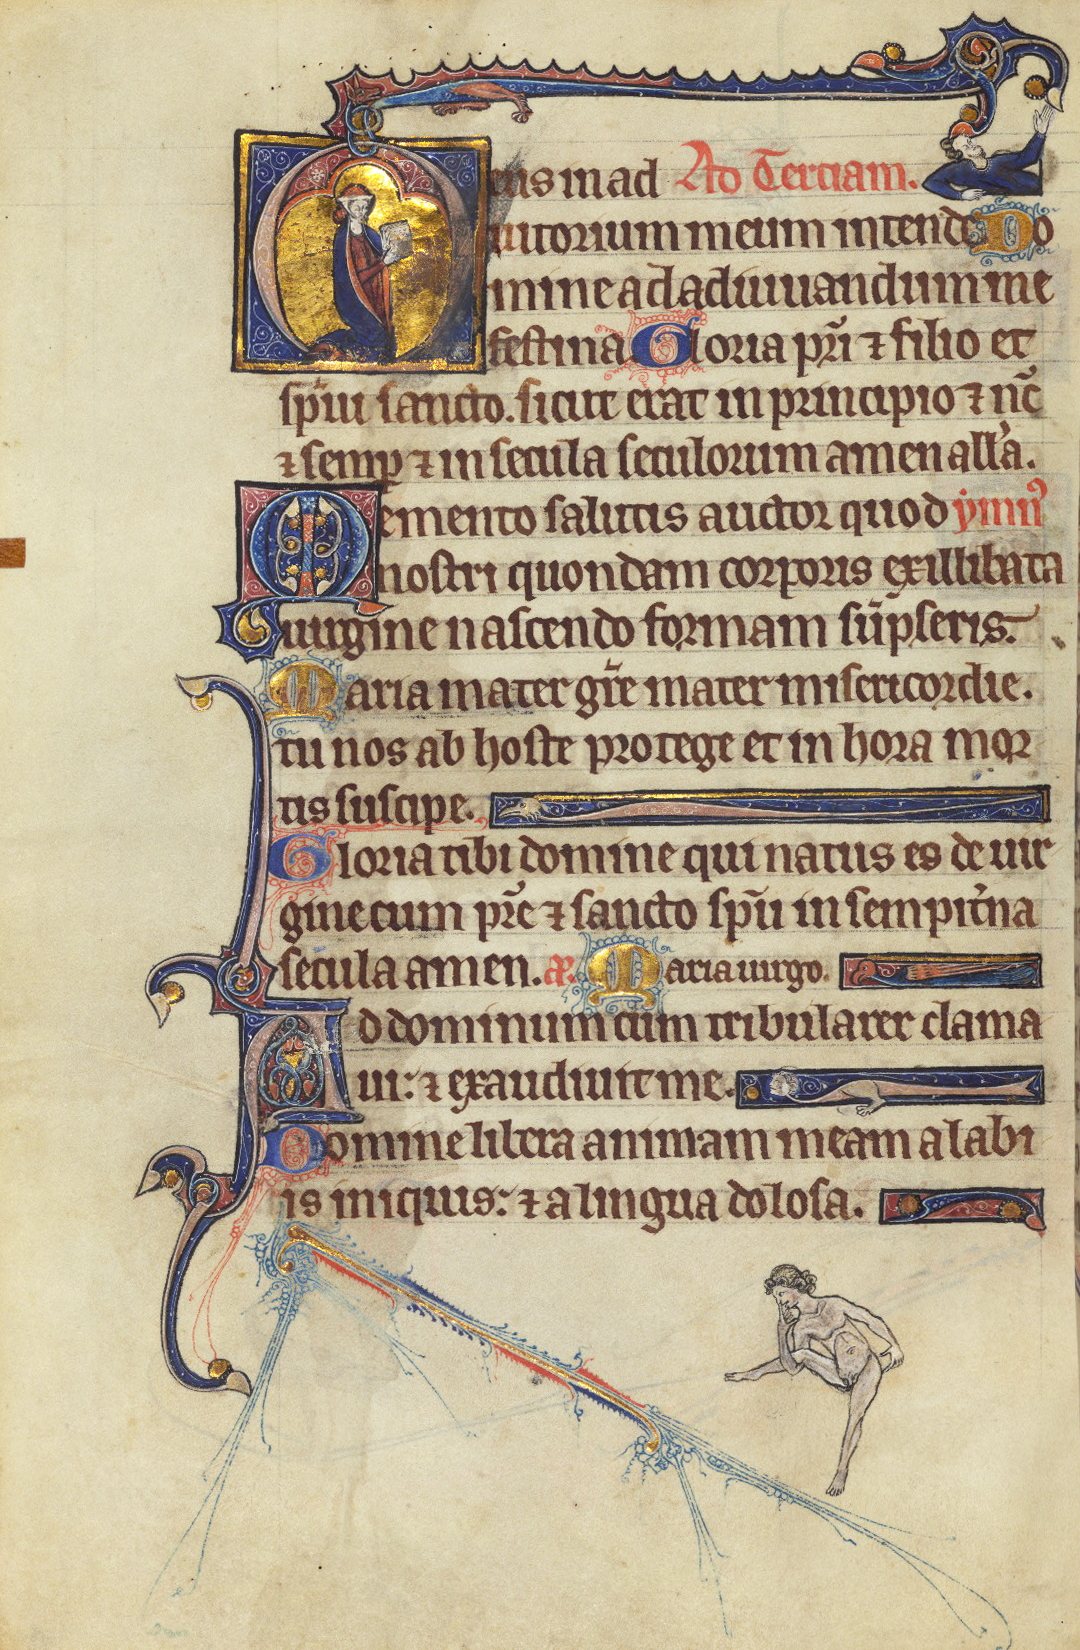 Deus in ad Ad Terciam.
iutorium meum intende Do
mine ad adiuuandum me
festina Gloria pr̄i ⁊ filio et
sp̄iu sancto. sicut erat in principio ⁊ nc̄
⁊ semꝑ ⁊ in secula seculorum amen all'a.
Memento salutis auctor quod ymnꝰ
nostri quondam corporis ex illibata
uirgine nascendo formam sūpseris.
Maria mater gr̄e mater misericordie.
tu nos ab hoste protege et in hora mor
tis suscipe.
Gloria tibi domine qui natus es de uir
gine cum pr̄e ⁊ sancto sp̄u in sempit'na
secula amen. Maria uirgo.
Ad dominum cum tribularer clama
ui: ⁊ exaudiuit me.
Domine libera animam meam a labi
is iniquis: ⁊ a lingua dolosa.